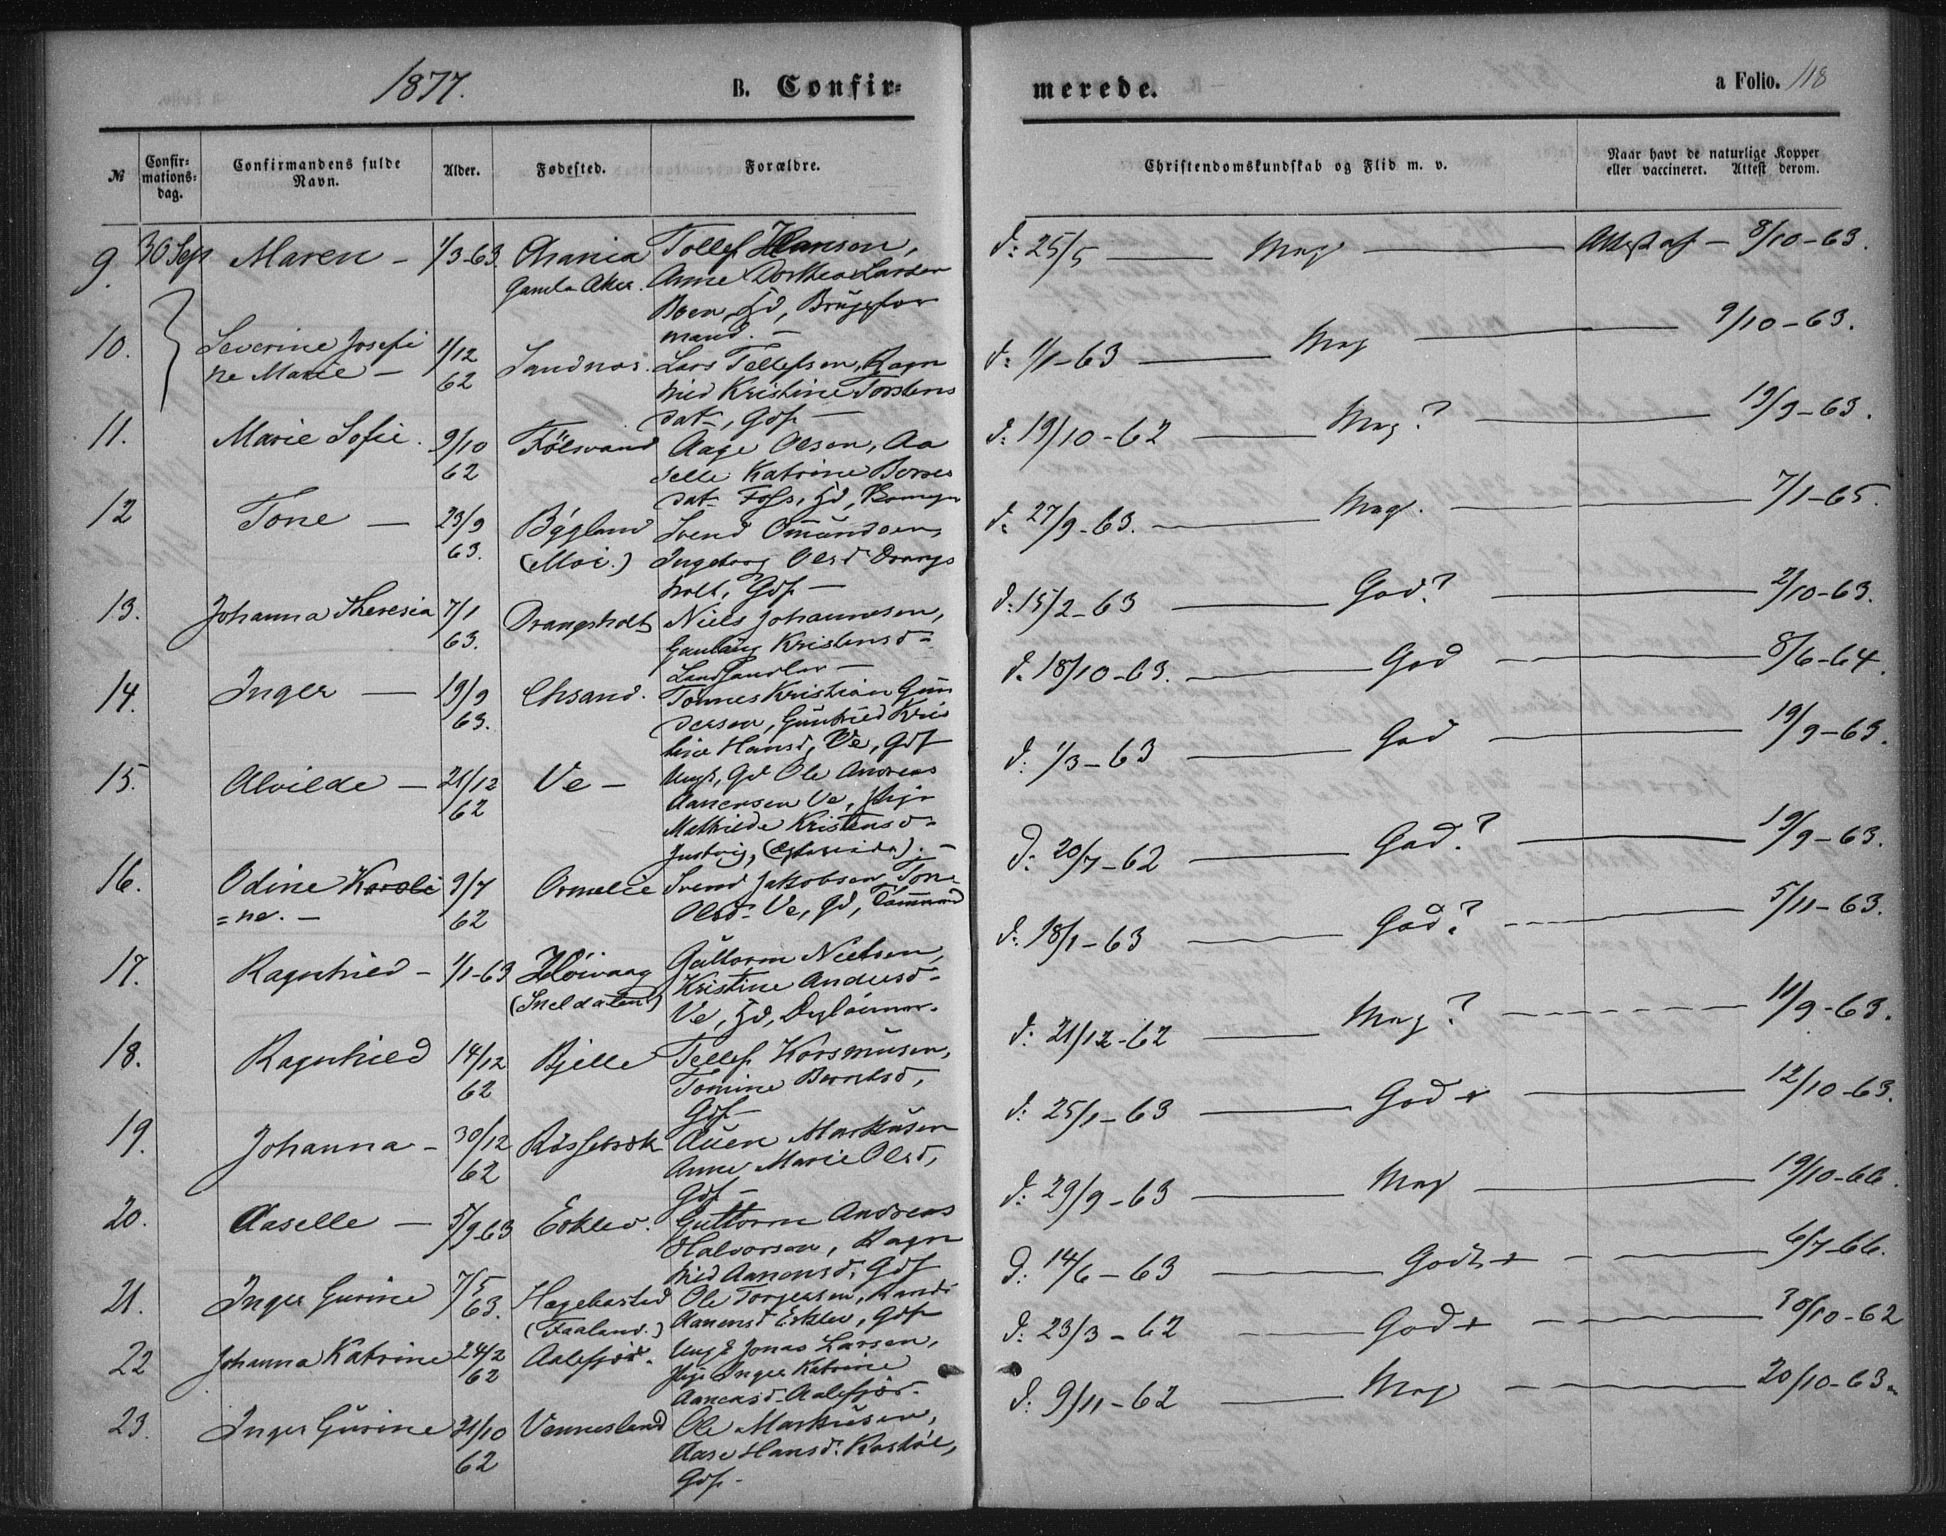 1877. B. Confir=
merede. a Folio. 118
№ Confirmations-dag. Confirmandens fulde Navn. Alder. Fødested. Forældre.
Christendomskundskab og Flid m. v. Naar havt de naturlige Kopper eller vaccineret. Attest derom.
9. 30 Sep Maren - 1/3-63 Chania Tollef Hansen,
Gamla Aker. Anne Dorthea Larsen
Boen, Hd,
mand. -
d: 25/5 Mag Attest af - 8/10-63.
10. Severine Josefi 1/12 Sandnes. Lars Tellefsen, Ragn
ne Marie - 62 hild Kristine Torstens
dat-, Gdf -
d: 1/1-63 Mag 9/10-63.
11. Marie Sofie. 9/10 Følsvand Aage Olsen, Aa
62 selle Katrine
dat- Foss, Hd,
d: 19/10-62 Mag? 19/9-63.
12 Tone - 23/9 Bygland Svend Omundsen,
63. (Moi.) Ingeborg Olsd Drangs
holt, Gdf -
d: 27/9-63. Mag. 7/1-65.
13. Johanna Theresia 7/1 Drangsholt Niels Johannesen,
63. Gunlaug Kristensd-
Landhandler -
d: 15/2-63 God? 2/10-63.
14. Inger - 19/9 Chsand. Tønnes Kristian Gun
63. dersen, Gunhild Kris
tine Hansd, Ve, Gdf
d: 18/10-63. God 8/6-64.
15. Alvilde - 21/12 Ve - Ungk, Gd Ole Andreas
62 Aanensen Ve, Pige
Mathilde Kristensd-
Justvig,
d: 1/3-63 God 19/9-63.
16. Odine Karoli 9/7 Ormelie Svend Jakobsen, Tone
=ne. - 62 Olsd- Ve, Gd, Tømmermd
d: 20/7-62 God? 19/9-63.
17. Ragnhild - 1/1-63 Höivaag Guttorm Nielsen,
(Sneldalen) Kristine Andersd-
Ve, Hd,
d: 18/1-63 God? 5/11-63.
18. Ragnhild 14/12 Bjelle Tellef Korsmusen,
62 Tomine Berntsd,
Gdf -
d: 21/12-62 Mag? 11/9-63.
19. Johanna - 30/12 Røsseboek Auen Markusen
62 Anne Marie Olsd,
Gdf -
d: 25/1-63 God + 12/10-63.
20. Aaselle - 5/9-63 Erklev. Guttorm Andreas
Halvorsen, Ragn
hild Aanensd, Gdf
d: 29/9-63 Mag 19/10-66.
21. Inger Gurine 7/5 Hægebosted Ole Torgersen, Randi
63. (Faaland.) Aanensd Erklev, Gdf
d: 14/6-63 Godt + 6/7-66.
22 Johanna Katrine 24/2 Aalefjær. Ungk Jonas Larsen,
62 Pige Inger Katrine
Aanensd- Aalefjær.
d: 23/3-62 God + 30/10-62
23. Inger Gurine 21/10 Vennesland Ole Markusen,
62 Aase Hansd. Rostøl,
Gdf -
d: 9/11-62 Mag 20/10-63.